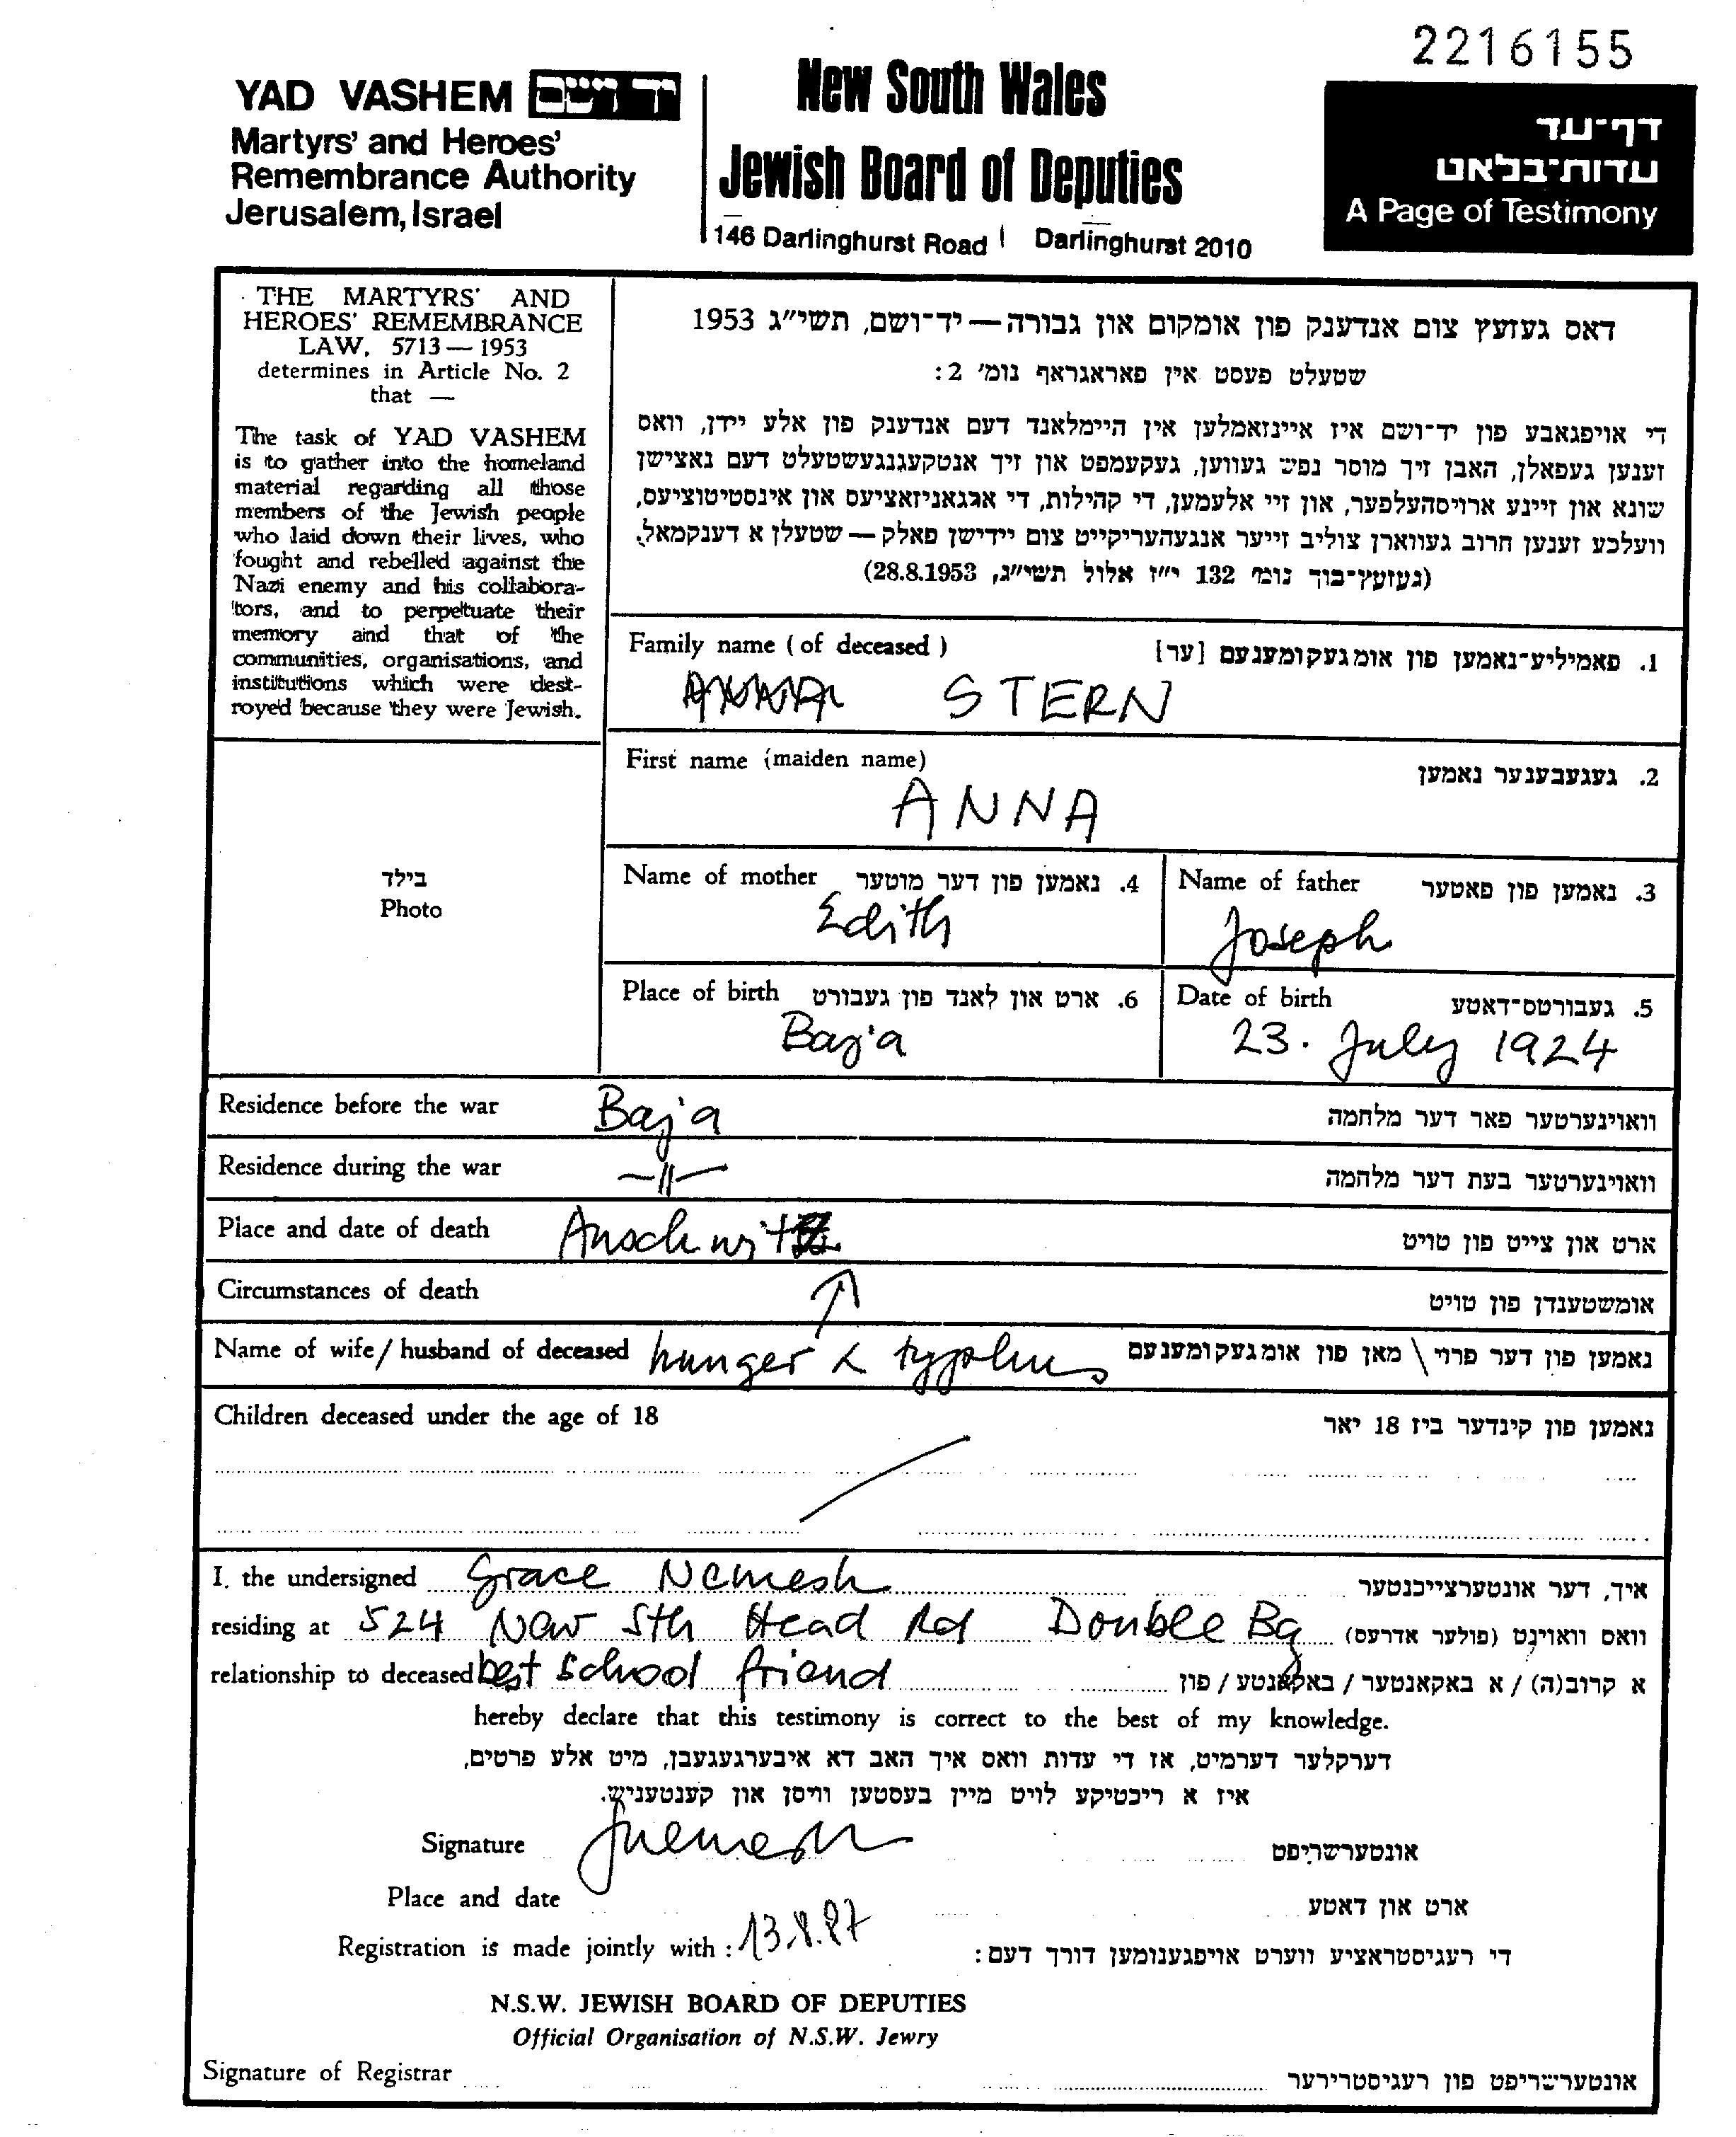 2216155
YAD VASHEM יד ושם
Martyrs' and Heroes'
Remembrance Authority
Jerusalem, Israel
New South Wales
Jewish Board of Deputies
146 Darlinghurst Road Darlinghurst 2010
דף-עד
עדות-בלאט
A Page of Testimony
THE MARTYRS' AND
HEROES' REMEMBRANCE
LAW, 5713 — 1953
determines in Article No. 2
that —
The task of YAD VASHEM
is to gather into the homeland
material regarding all those
members of the Jewish people
who laid down their lives, who
fought and rebelled against the
Nazi enemy and his collabora-
tors, and to perpetuate their
memory and that of the
communities, organisations, and
institutions which were dest-
royed because they were Jewish.
דאס געזעץ צום אנדענק פון אומקום און גבורה — יד־ושם, תשי״ג 1953
שטעלט פעסט אין פאראגראף נומ׳ 2:
די אויפגאבע פון יד־ושם איז איינזאמלען אין היימלאנד דעם אנדענק פון אלע יידן, וואס
זענען געפאלן, האבן זיך מוסר נפש געווען, געקעמפט און זיך אנטקעגנגעשטעלט דעם נאצישן
שונא און זיינע ארויסהעלפער, און זיי אלעמען, די קהילות, די ארגאניזאציעס און אינסטיטוציעס,
וועלכע זענען חרוב געווארן צוליב זייער אנגעהעריקייט צום יידישן פאלק — שטעלן א דענקמאל.
(געזעץ־בוך נומ׳ 132 י״ז אלול תשי״ג, 28.8.1953)
Family name (of deceased) 1. פאמיליע־נאמען פון אומגעקומענעם [ער]
STERN
First name (maiden name) 2. געגעבענער נאמען
ANNA
בילד
Photo
Name of mother 4. נאמען פון דער מוטער
Edith
Name of father 3. נאמען פון פאטער
Joseph
Place of birth 6. ארט און לאנד פון געבורט
Baja
Date of birth 5. געבורטס־דאטע
23. July 1924
Residence before the war Baja וואוינערטער פאר דער מלחמה
Residence during the war —"— וואוינערטער בעת דער מלחמה
Place and date of death Auschwitz ארט און צייט פון טויט
Circumstances of death ↑ אומשטענדן פון טויט
Name of wife / husband of deceased hunger & typhus נאמען פון דער פרוי \ מאן פון אומגעקומענעם
Children deceased under the age of 18 נאמען פון קינדער ביז 18 יאר
I, the undersigned Grace Nemesh איך, דער אונטערצייכנטער
residing at 524 New Sth Head Rd Double Bay וואס וואוינט (פולער אדרעס)
relationship to deceased best school friend א קרוב(ה) / א באקאנטער / באקאנטע / פון
hereby declare that this testimony is correct to the best of my knowledge.
דערקלער דערמיט, אז די עדות וואס איך האב דא איבערגעגעבן, מיט אלע פרטים,
איז א ריכטיקע לויט מיין בעסטען וויסן און קענטעניש.
Signature אונטערשריפט
Place and date ארט און דאטע
Registration is made jointly with : 13.8.87 די רעגיסטראציע ווערט אויפגענומען דורך דעם:
N.S.W. JEWISH BOARD OF DEPUTIES
Official Organisation of N.S.W. Jewry
Signature of Registrar אונטערשריפט פון רעגיסטרירער